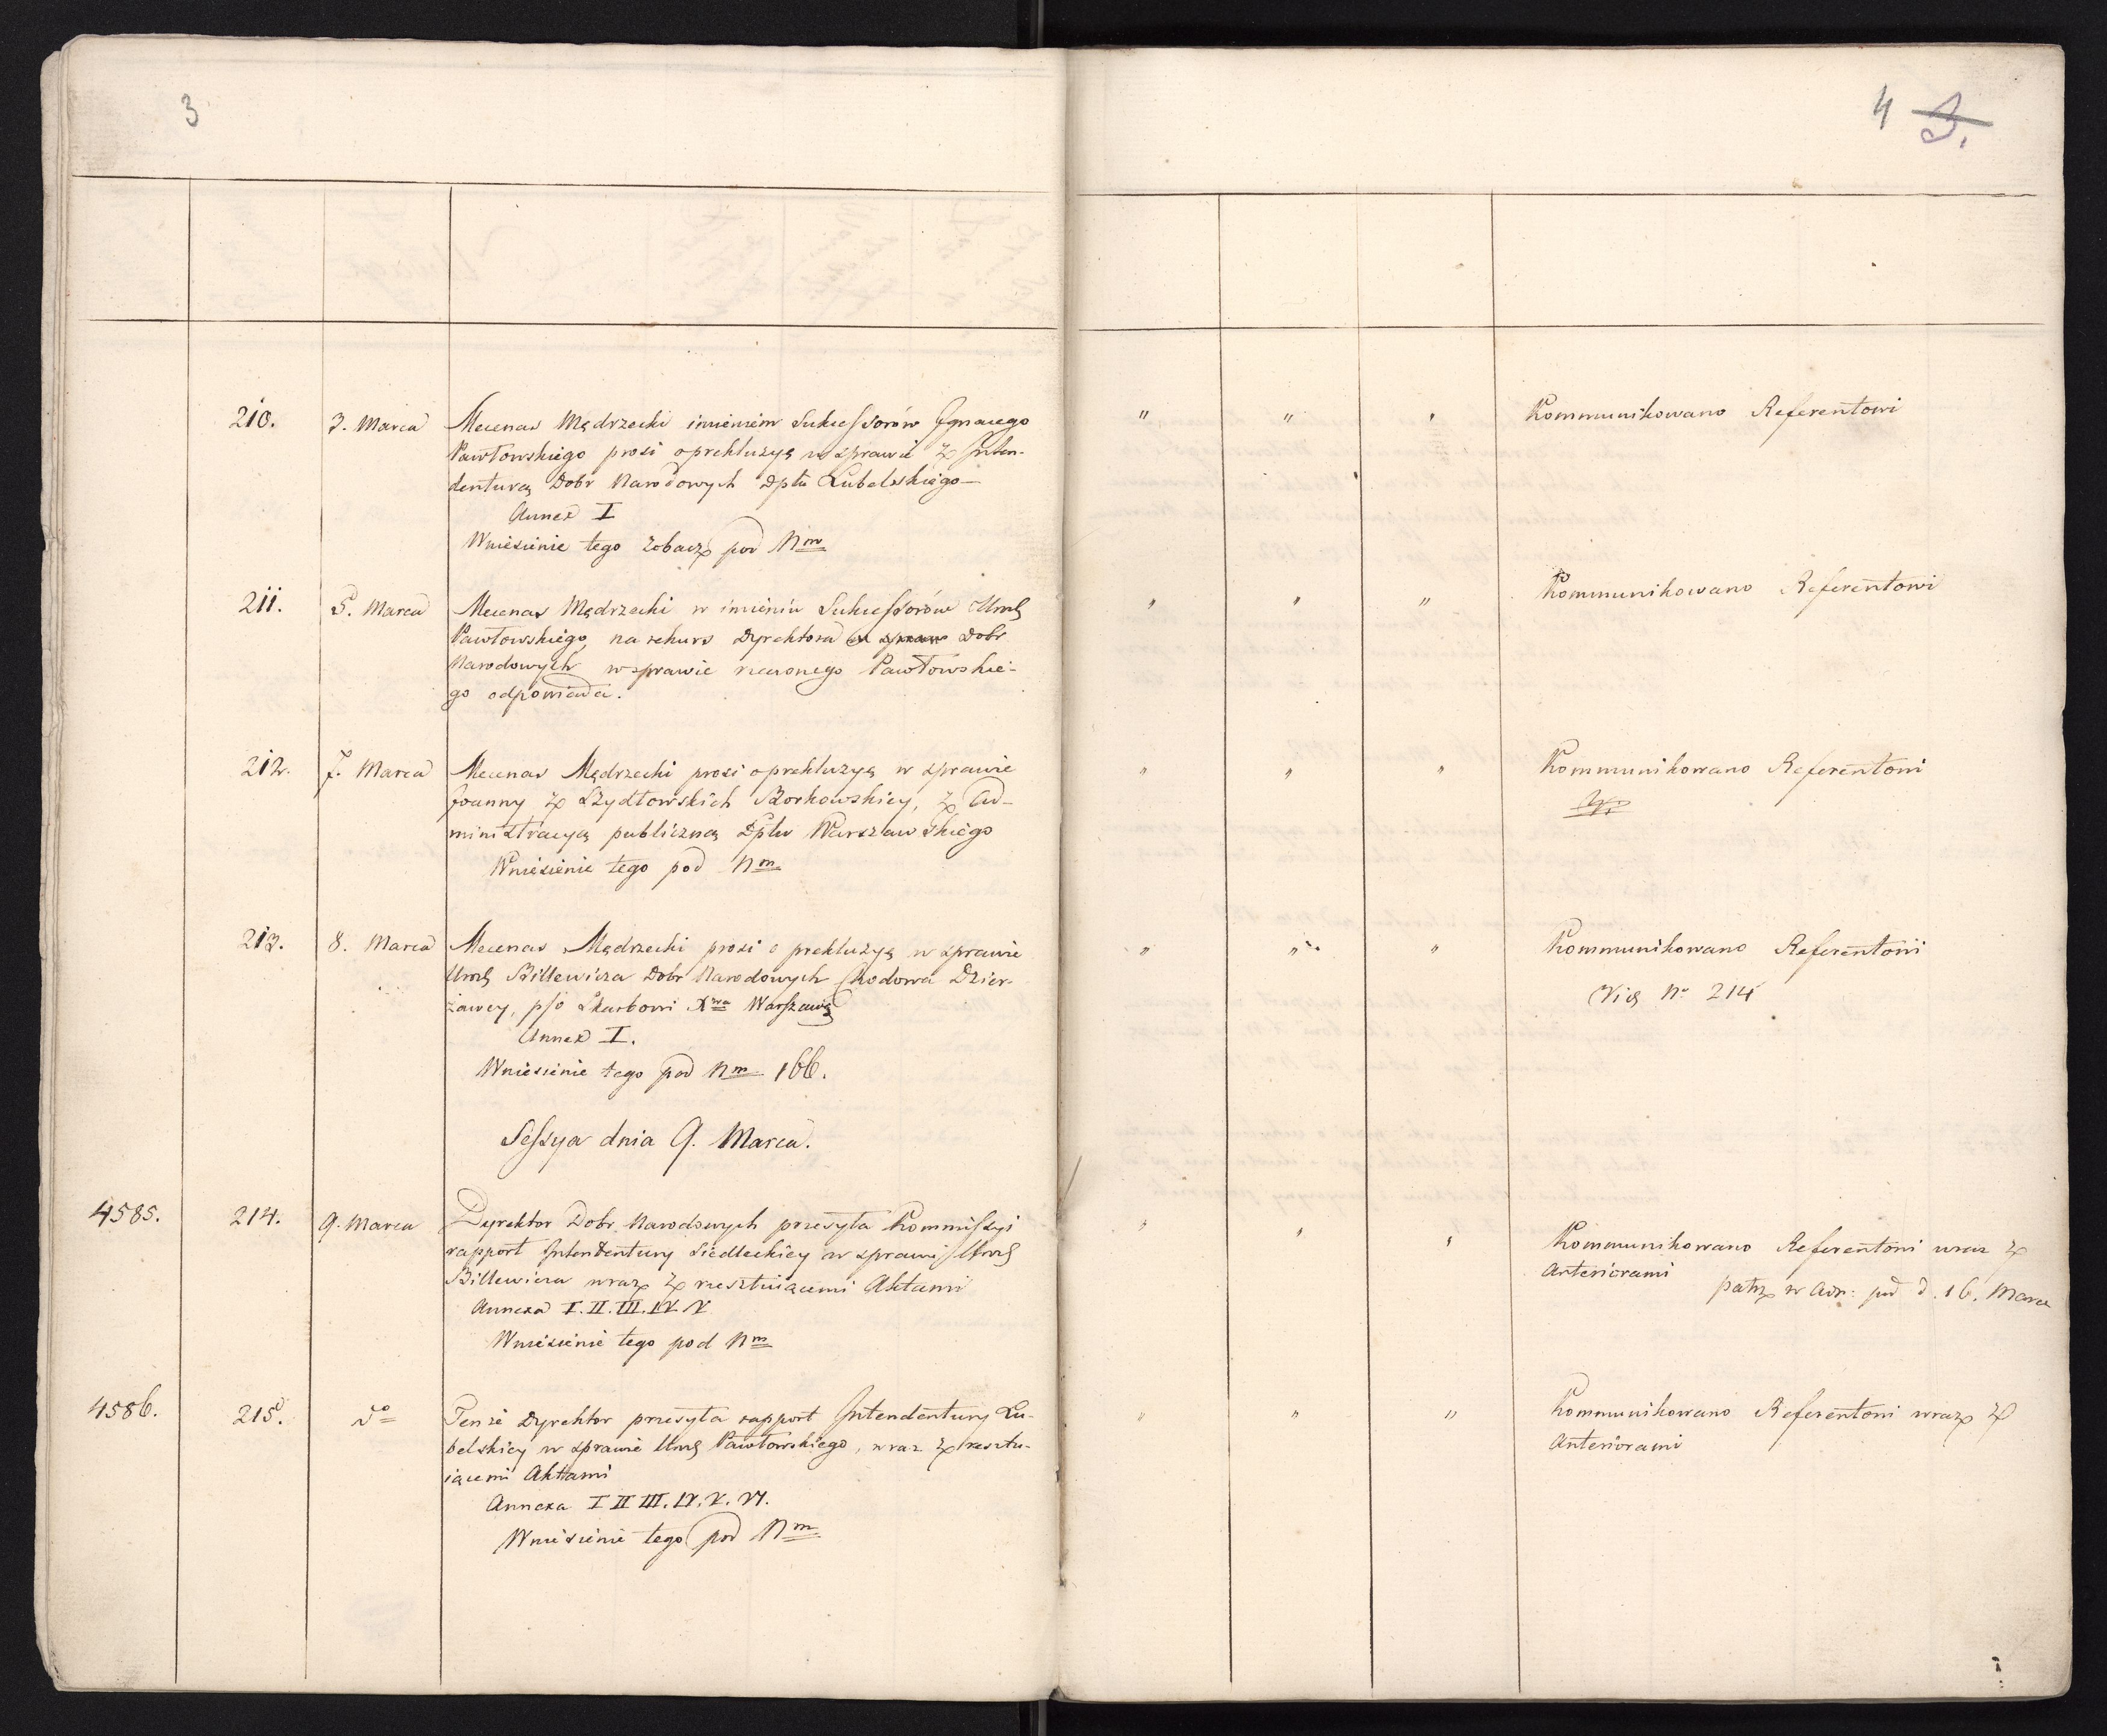 3
210. 3. Marca Mecenas Mędrzecki imieniem Sukcessorów Ignacego
Pawłowskiego prosi o prekluzyą w sprawie z Inten-
denturą Dobr Narodowych Dptu Lubelskiego
Annex I
Wniesienie tego zobacz pod Nm
211. 5. Marca Mecenas Mędrzecki w imieniu Sukcessorów Urog
Pawłowskiego, na rekurs Dyrektora Dobr
Narodowych w sprawie rzeczonego Pawłowskie-
go odpowiada.
212. 7. Marca Mecenas Mędrzecki prosi o prekluzyą w sprawie
Joanny z Szydłowskich Borkowskiey, z Ad-
ministracyą publiczną Dptu Warszawskiego
Wniesienie tego pod Nm
213. 8. Marca Mecenas Mędrzecki prosi o prekluzyą w sprawie
Urog Billewicza Dobr Narodowych Chodowa Dzier-
żawcy, p/o Skarbowi Xwa Warszawsg
Annex I.
Wniesienie tego pod Nm 166.
Sessya dnia 9. Marca.
4585. 214. 9. Marca Dyrektor Dobr Narodowych przesyła Kommissyi
rapport Intendentury Siedleckiey w sprawie Urog
Billewicza wraz z resztuiącemi Aktami
Annexa I. II. III. IV. V
Wniesienie tego pod Nm
4586. 215. do Tenże Dyrektor przesyła rapport Intendentury Lu-
belskiey w sprawie Urog Pawłowskiego, wraz z resztu-
iącemi Aktami
Annexa I II III. IV. V. VI.
Wniesienie tego pod Nm
4 3.
" " " Kommunikowano Referentowi
" " " Kommunikowano Referentowi
" " " Kommunikowano Referentowi
" " " Kommunikowano Referentowi
Vide No 214
" " " Kommunikowano Referentowi wraz z
Anteriorami
patrz w Adn: pod d. 16. Marca
" " " Kommunikowano Referentowi wraz z
Anteriorami